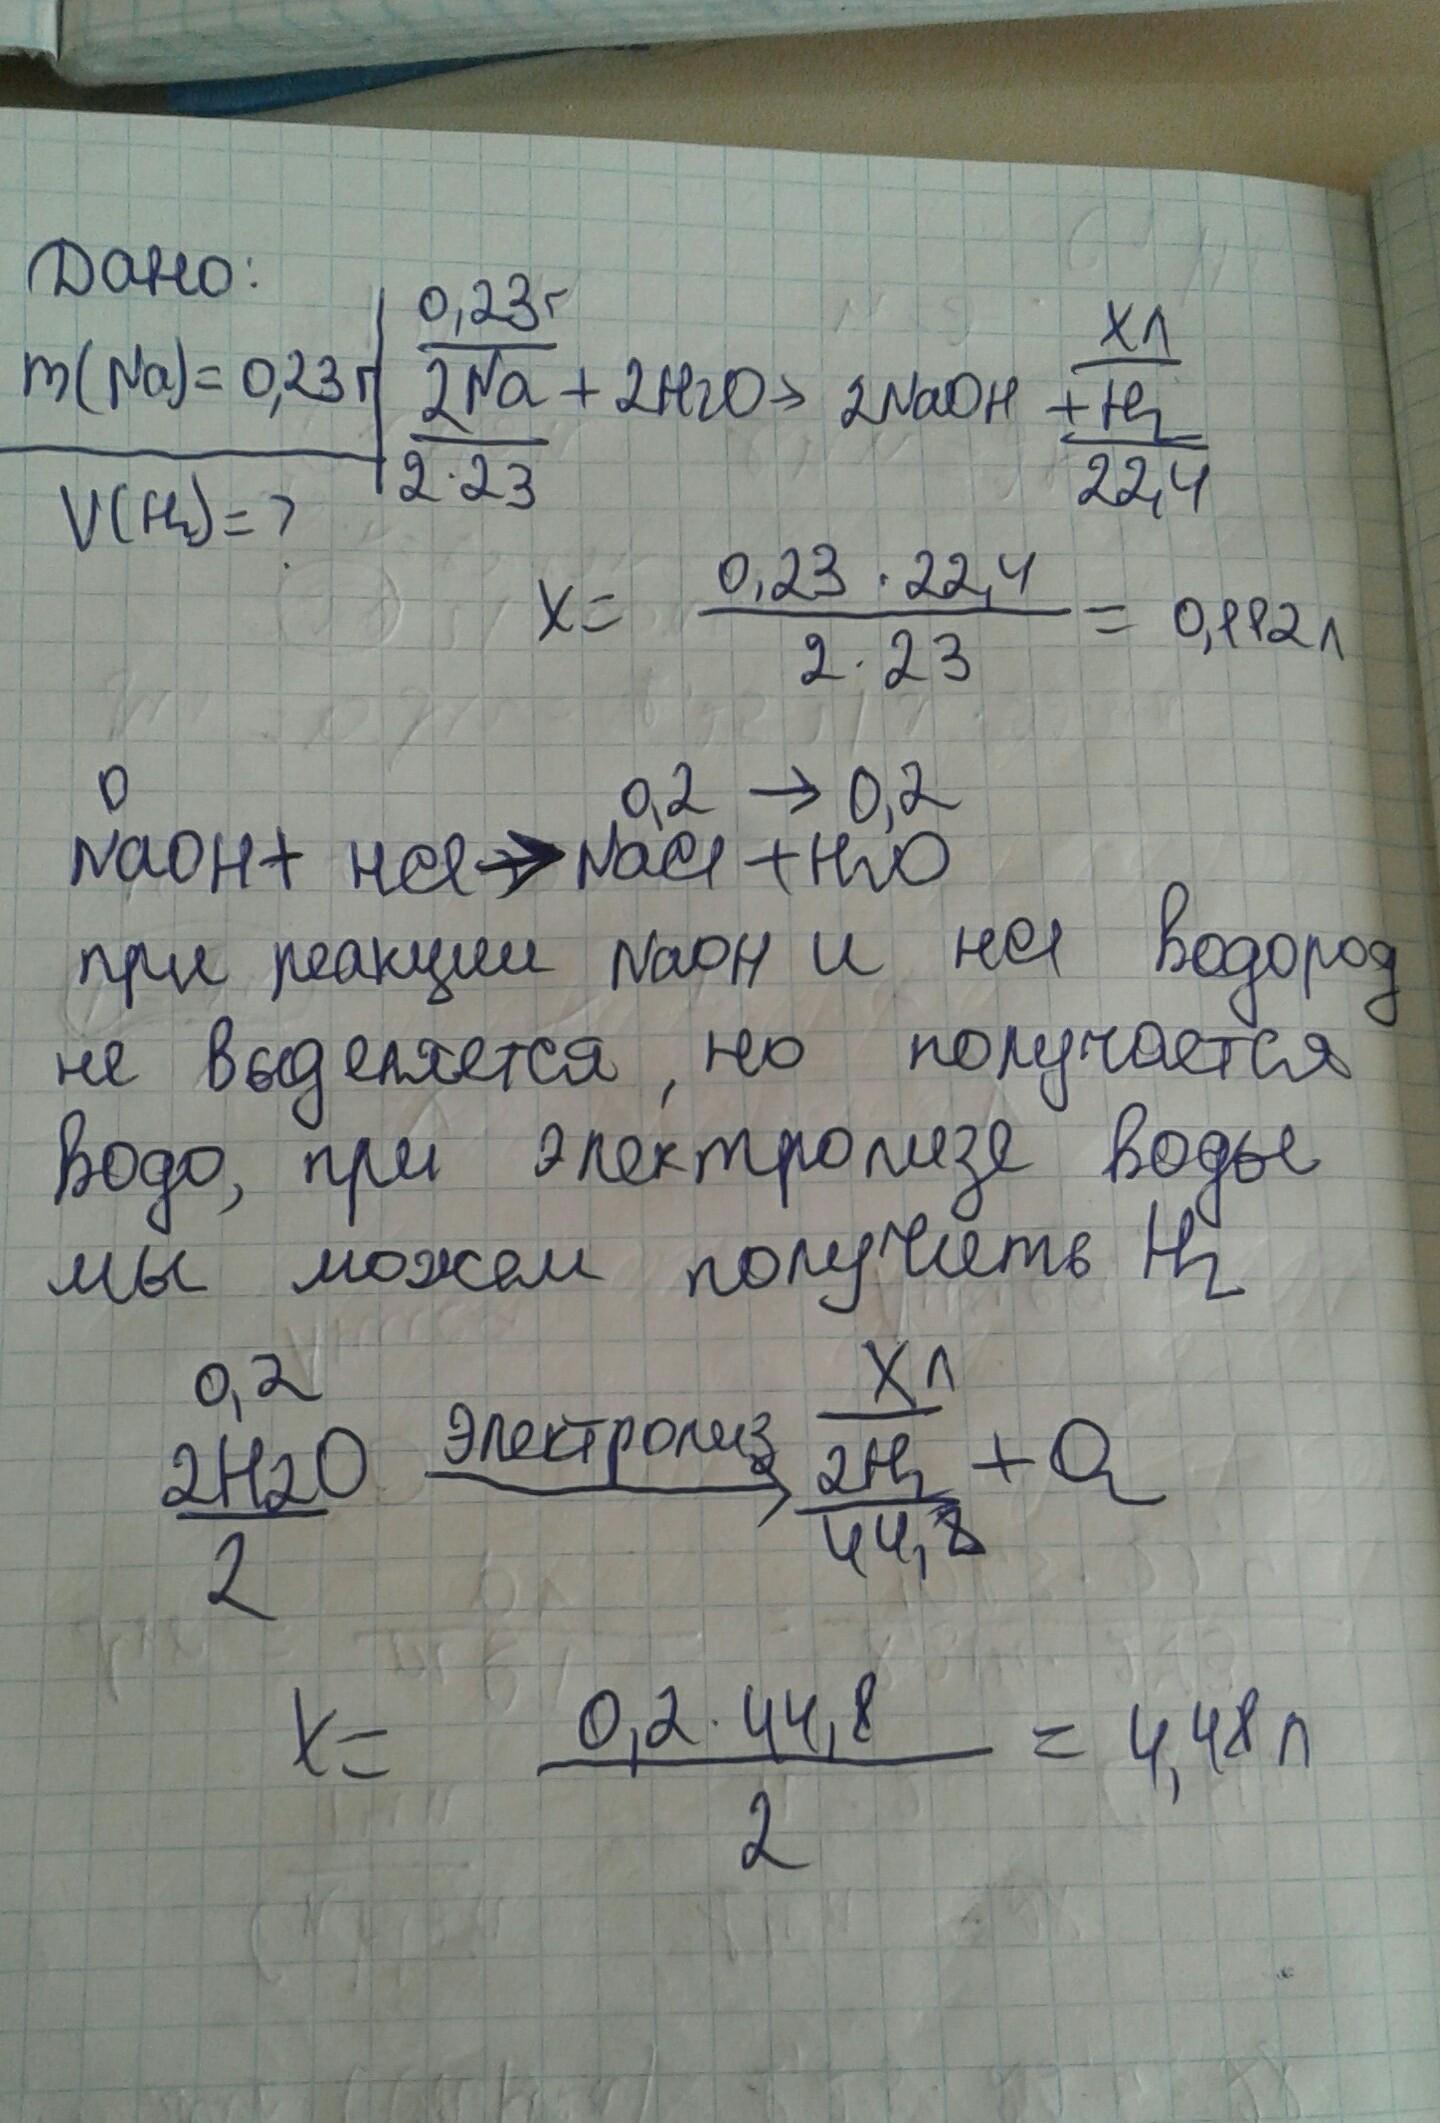 Дано:
m(Na)=0,23г
V(H2)=?
0,23г
xл
2Na + 2H2O → 2NaOH + H2
2·23
22,4
X= 0,23·22,4 / 2·23 = 0,112л
0,2 → 0,2
NaOH + HCl → NaCl + H2O
при реакции NaOH и HCl водород
не выделяется, но получается
водо, при электролизе воды
мы можем получить H2
0,2
Xл
2H2O электролиз → 2H2 + O2
2
44,8
X= 0,2·44,8 / 2 = 4,48л